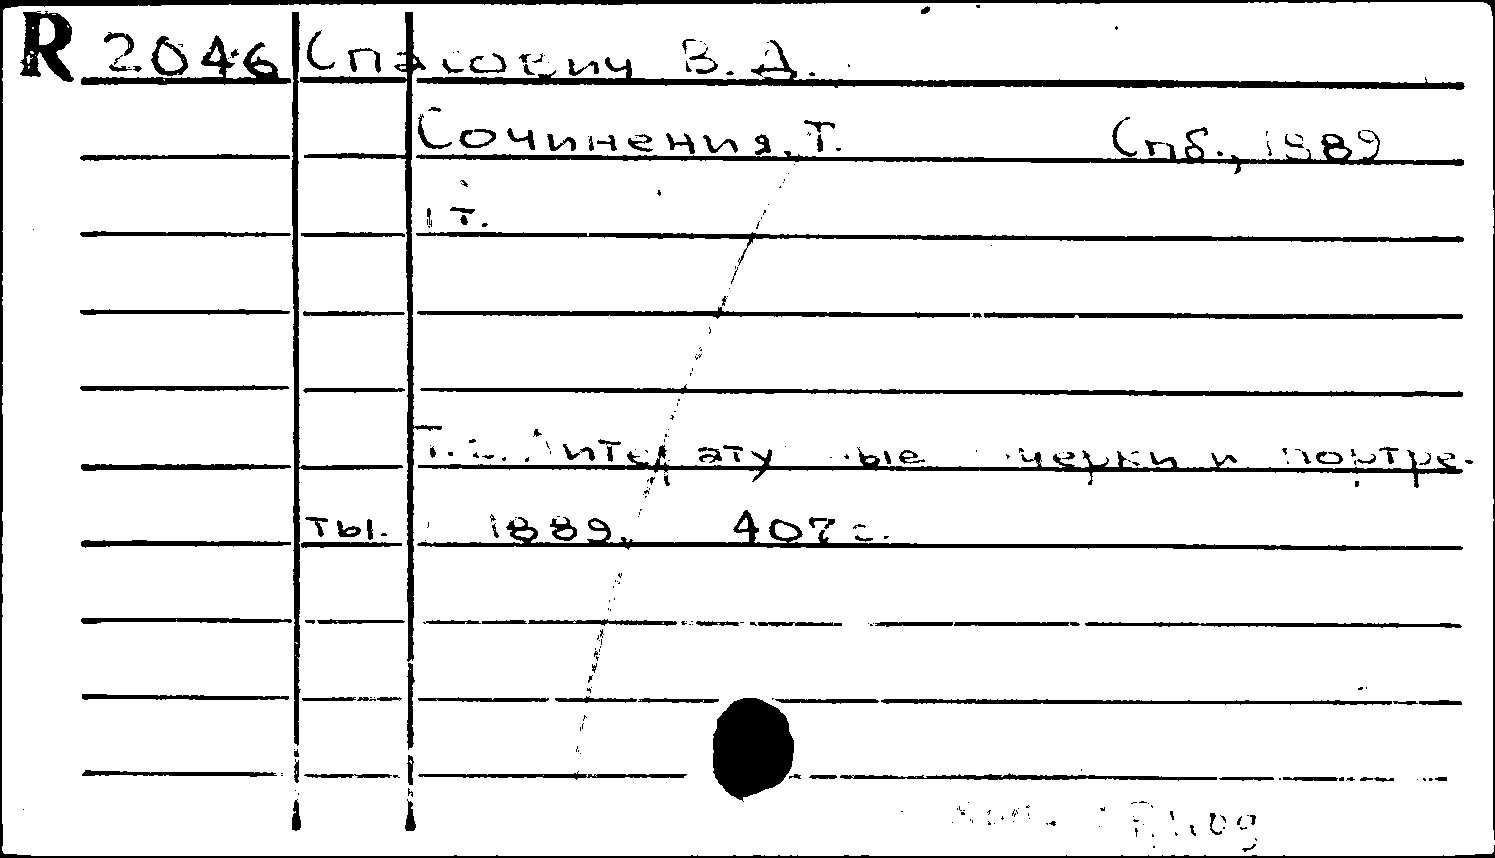 R 2046 Спасович В. Д.
Сочинения. Т. Спб., 1889
1 т.
Т. Литературные очерки и портре-
ты. 1889. 407 с.